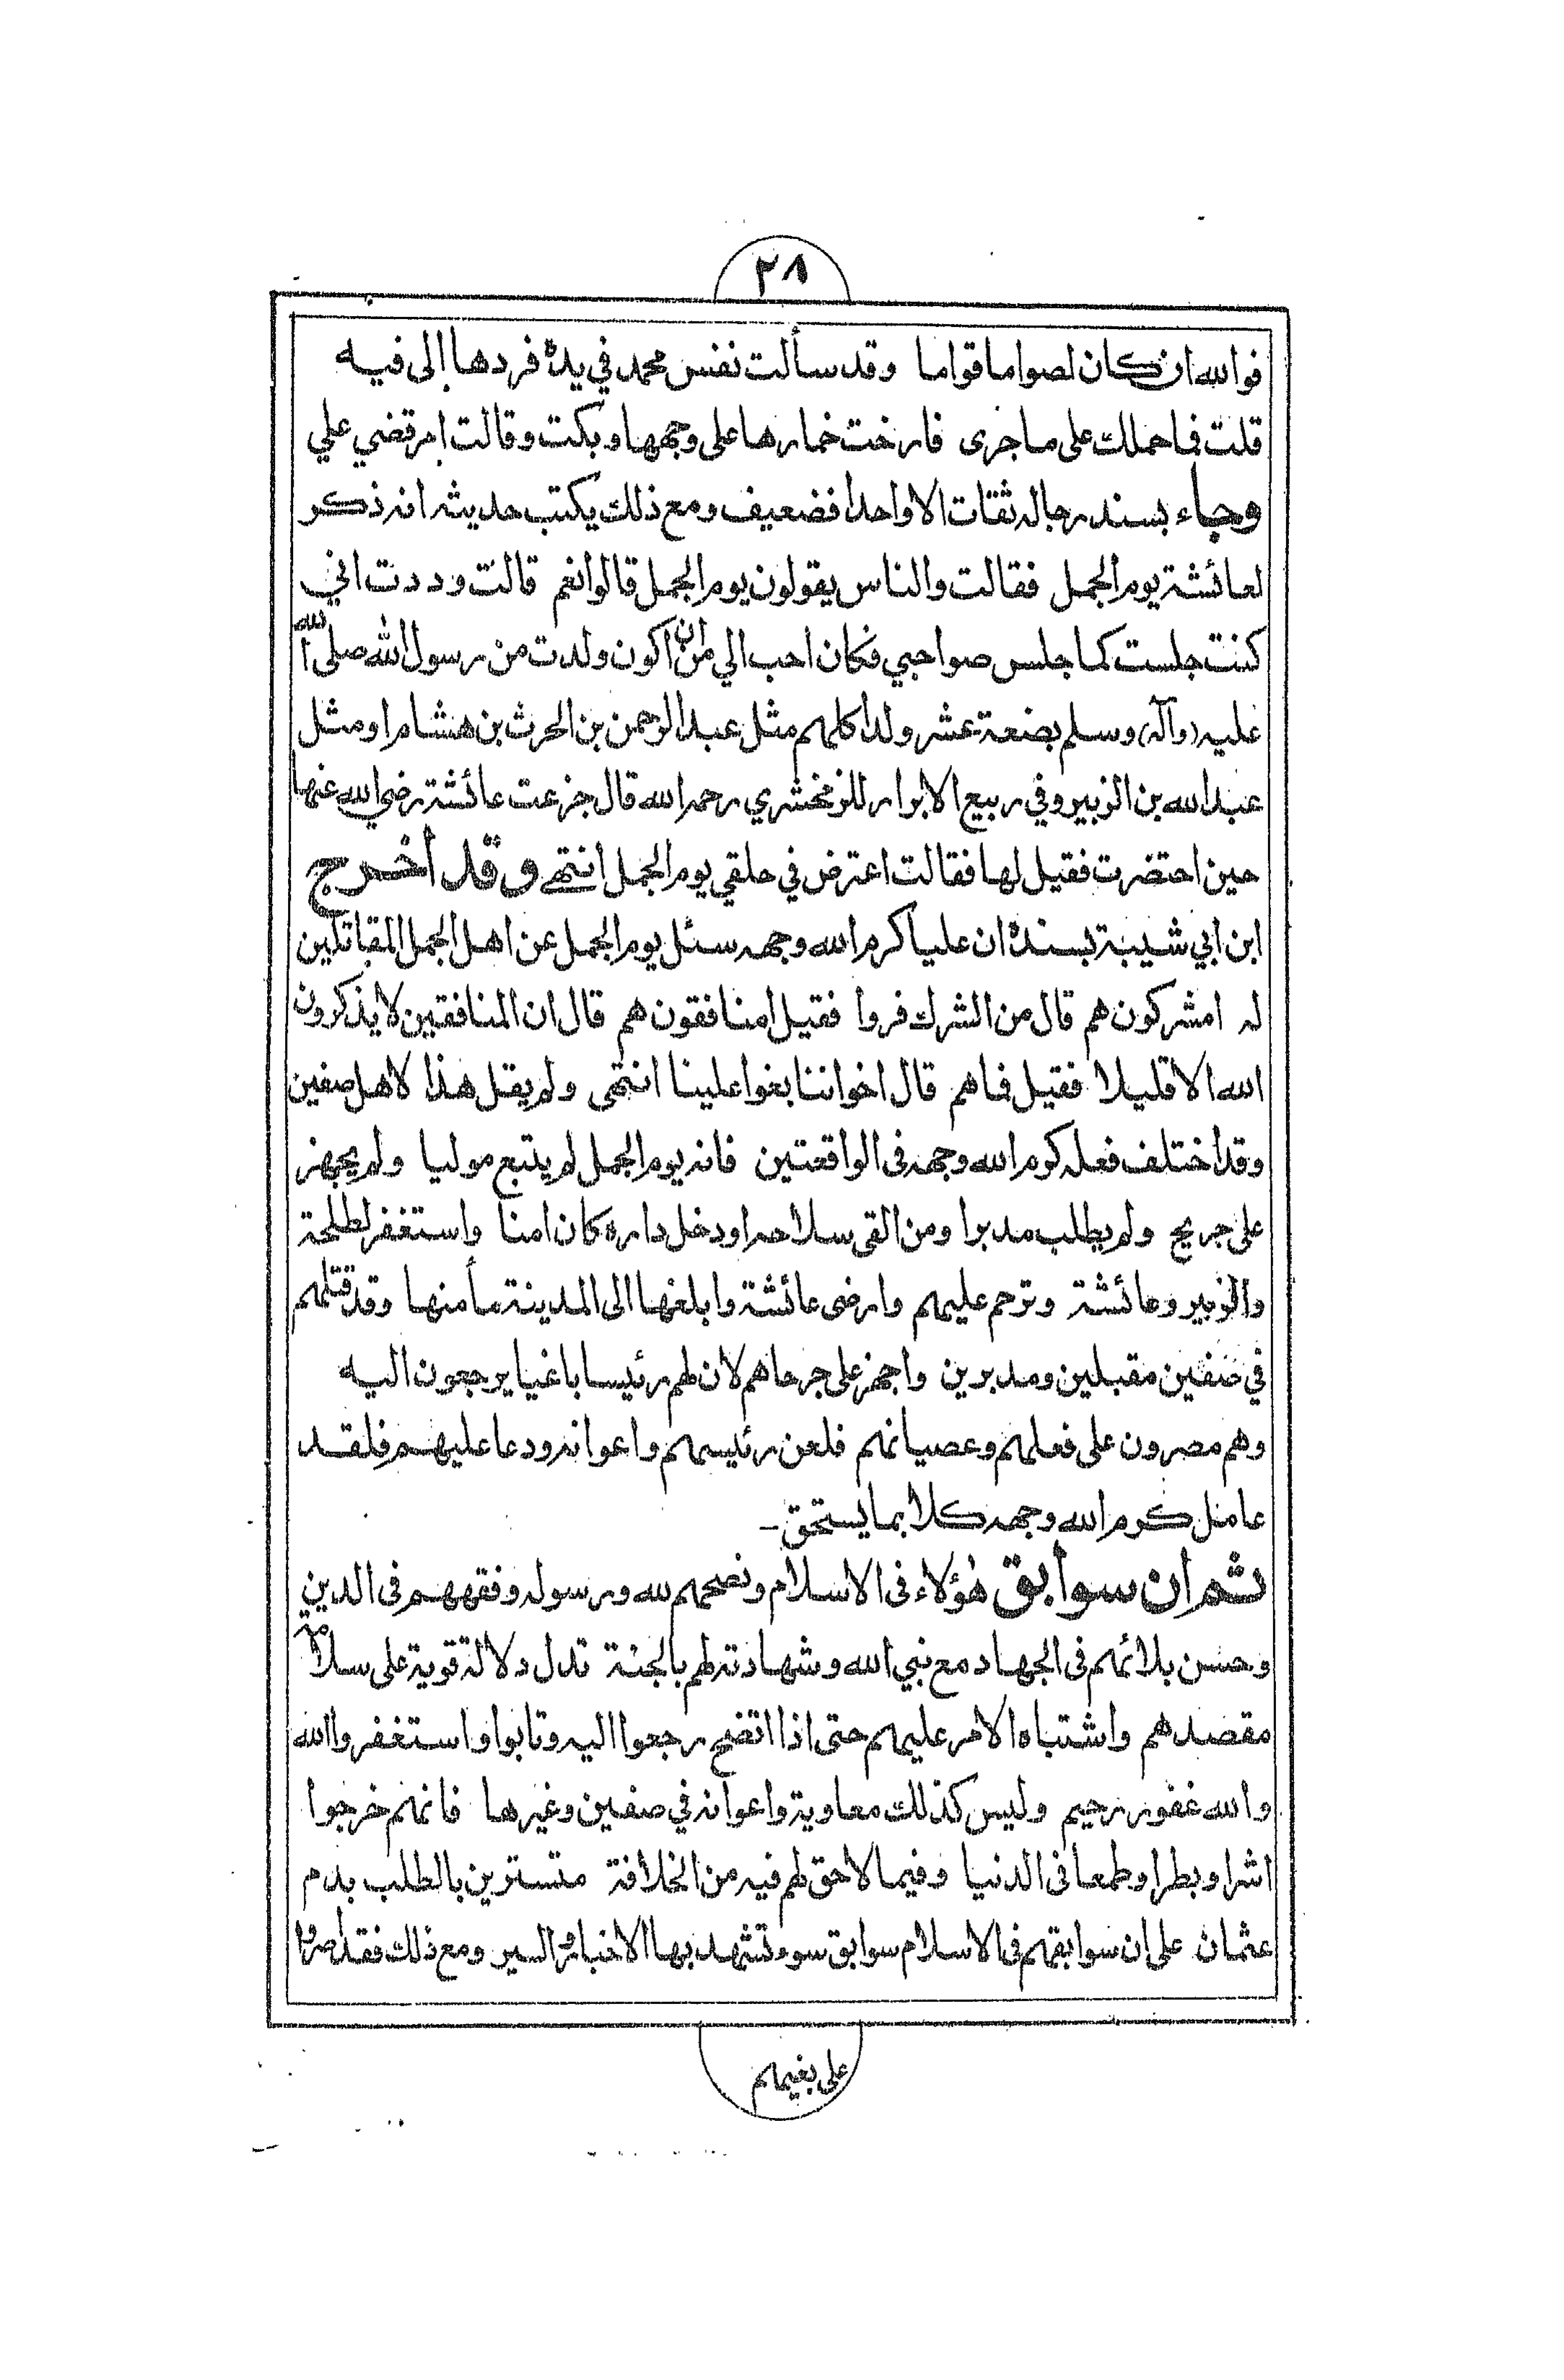 ٢٨
فوالله ان كان لصواما قواما وقد سألت نفس محمد في يده فردها الى فيه
قلت فما حملك على ما جرى فارخت خمارها على وجهها وبكت وقالت امر قضي علي
وجاء بسند رجاله ثقات الا واحدا فضعيف ومع ذلك يكتب حديثه انه ذكر
لعائشة يوم الجمل فقالت والناس يقولون يوم الجمل قالوا نعم قالت وددت اني
كنت جلست كما جلس صواحبي فكان احب الي من ان اكون ولدت من رسول الله صلى الله
عليه (وآله) وسلم بضعة عشر ولدا كلهم مثل عبد الرحمن بن الحرث بن هشام او مثل
عبد الله بن الزبير وفي ربيع الابرار للزمخشري رحمه الله قال جزعت عائشة رضي الله عنها
حين احتضرت فقيل لها فقالت اعترض في حلقي يوم الجمل انتهى وقد أخرج
ابن ابي شيبة بسنده ان عليا كرم الله وجهه سئل يوم الجمل عن اهل الجمل المقاتلين
له امشركون هم قال من الشرك فروا فقيل امنافقون هم قال ان المنافقين لا يذكرون
الله الا قليلا فقيل فما هم قال اخواننا بغوا علينا انتهى ولم يقل هذا لاهل صفين
وقد اختلف فعله كرم الله وجهه فى الواقعتين فانه يوم الجمل لم يتبع موليا ولم يجهز
على جريح ولم يطلب مدبرا ومن القى سلاحه او دخل داره كان امنا واستغفر لطلحة
والزبير وعائشة وترحم عليهم وارضى عائشة وابلغها الى المدينة مأمنها وقد قتلهم
في صفين مقبلين ومدبرين واجهز على جرحاهم لان لهم رئيسا باغيا يرجعون اليه
وهم مصرون على فعلهم وعصيانهم فلعن رئيسهم واعوانه ودعا عليهم فلقد
عامل كرم الله وجهه كلا بما يستحق -
ثم ان سوابق هٰؤلاء فى الاسلام ونصحهم لله ورسوله وفقههم فى الدين
وحسن بلائهم فى الجهاد مع نبي الله وشهادته لهم بالجنة تدل دلالة قوية على سلامة
مقصدهم واشتباه الامر عليهم حتى اذا اتضح رجعوا اليه وتابوا واستغفروا الله
والله غفور رحيم وليس كذلك معاوية واعوانه في صفين وغيرها فانهم خرجوا
اشرا وبطرا وطمعا فى الدنيا وفيما لا حق لهم فيه من الخلافة متسترين بالطلب بدم
عثمان على ان سوابقهم فى الاسلام سوابق سوء تشهد بها الاخبار والسير ومع ذلك فقد اصروا
على بغيهم